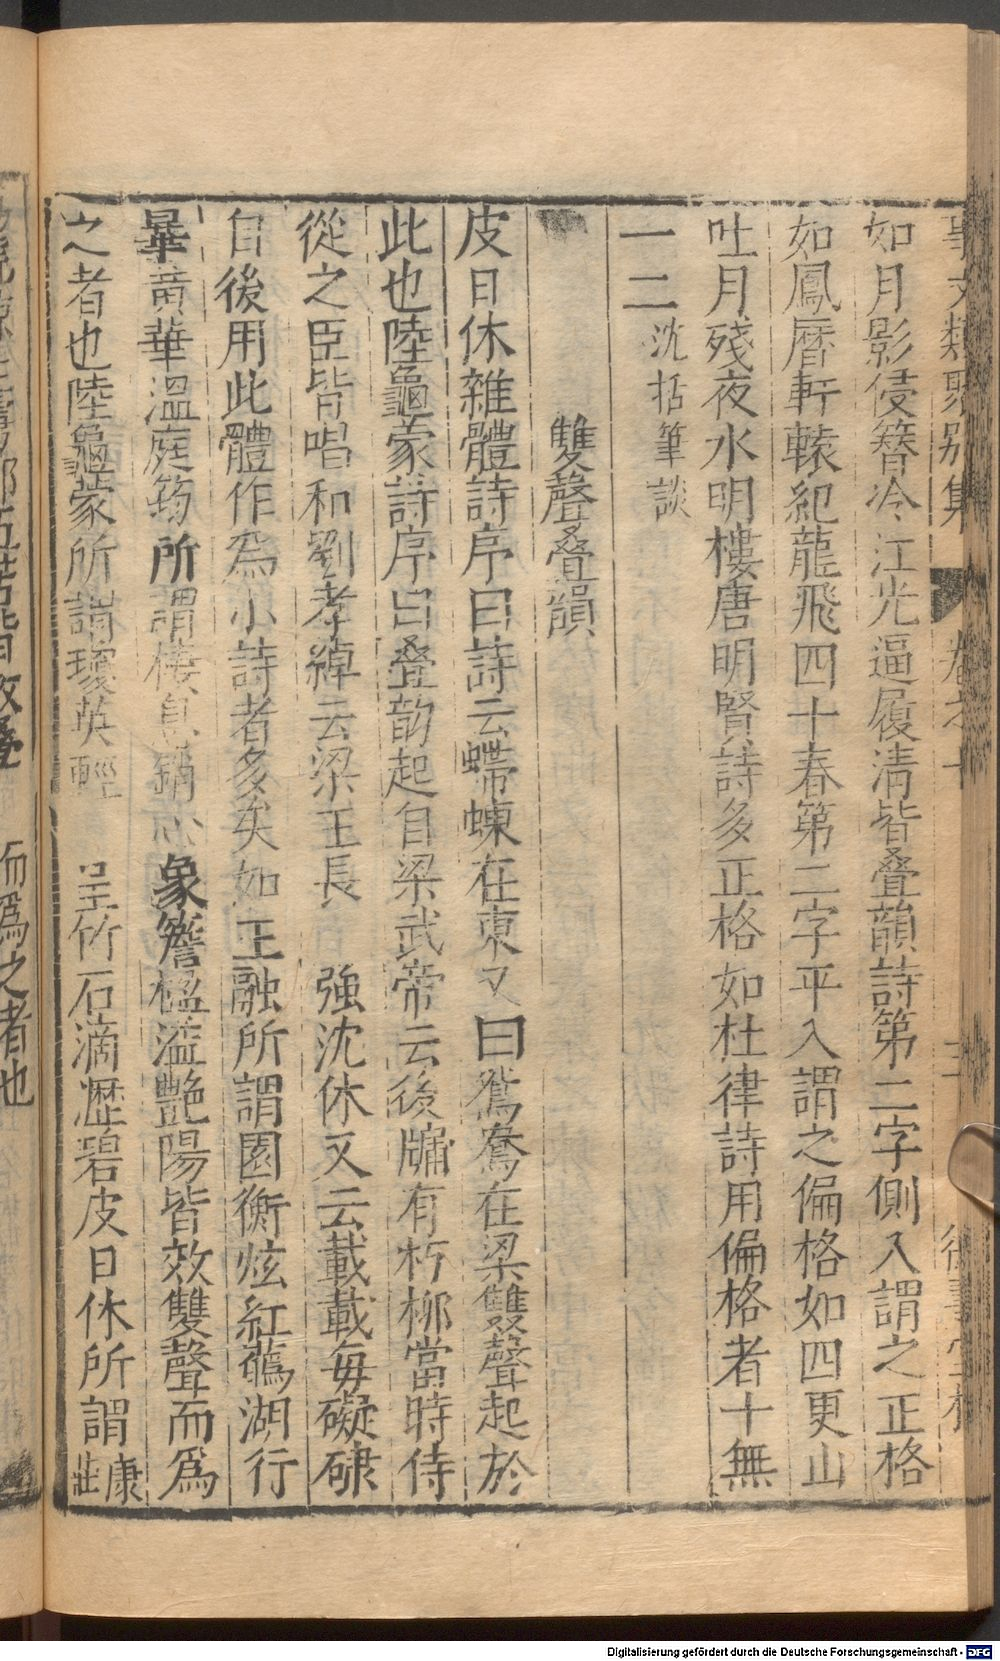 事文類聚別集 卷之十
如月影侵簪冷江光逼履清皆叠韻詩第二字側入謂之正格
如鳳曆軒轅紀龍飛四十春第二字平入謂之偏格如四更山
吐月殘夜水明樓唐明賢詩多正格如杜律詩用偏格者十無
一二沈括筆談
雙聲叠韻
皮日休雜體詩序曰詩云蝃蝀在東又曰鴛鴦在梁雙聲起於
此也陸龜蒙詩序曰叠韵起自梁武帝云後牖有朽柳當時侍
從之臣皆唱和劉孝綽云梁王長 強沈休又云載載每礙碌
自後用此體作為小詩者多矣如王融所謂園蘅炫紅蘤湖行
曅黃華溫庭筠所謂棲息 象簷楹溢艷陽皆效雙聲而爲
之者也陸龜蒙所謂瓊英輕 呈竹石滴瀝碧皮日休所謂康莊
而爲之者也
Digitalisierung gefördert durch die Deutsche Forschungsgemeinschaft - DFG